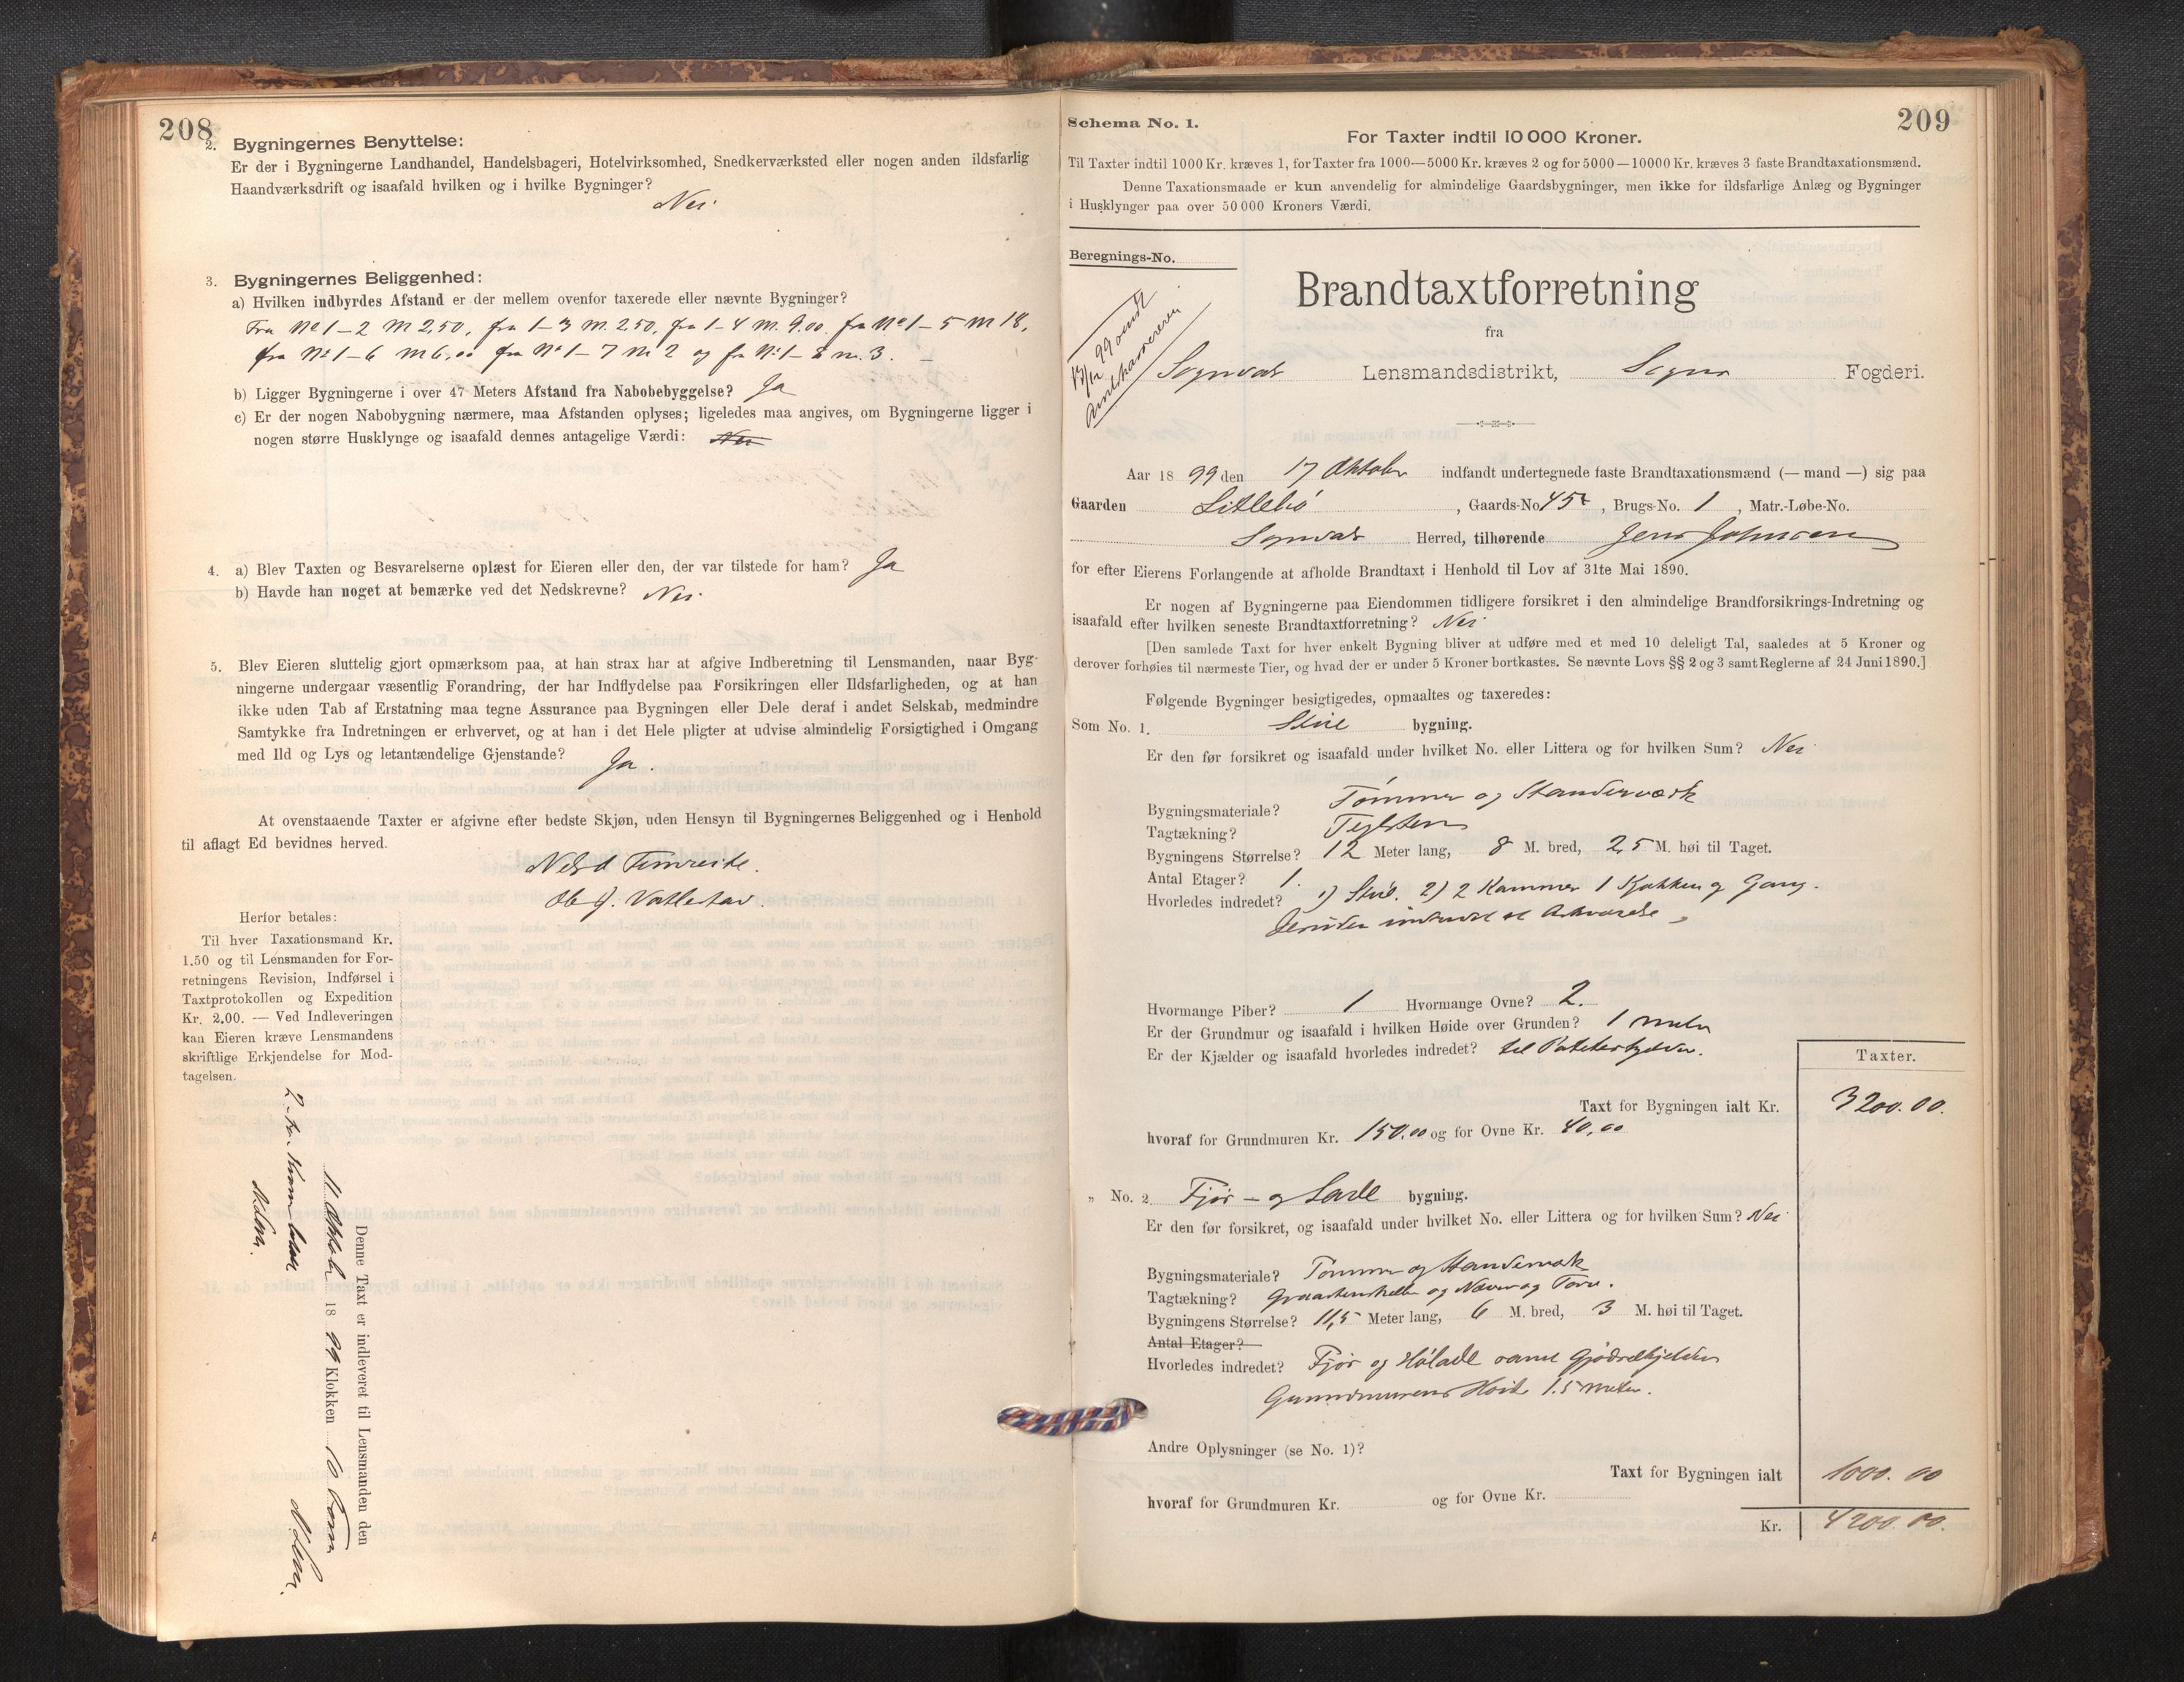 208
2. Bygningernes Benyttelse:
Er der i Bygningerne Landhandel, Handelsbageri, Hotelvirksomhed, Snedkerværksted eller nogen anden ildsfarlig
Haandværksdrift og isaafald hvilken og i hvilke Bygninger?
Nei.
3. Bygningernes Beliggenhed:
a) Hvilken indbyrdes Afstand er der mellem ovenfor taxerede eller nævnte Bygninger?
Fra No 1-2 M 2,50, fra 1-3 M. 2.50, fra 1-4 M. 9.00. fra No 1-5 M 18,
fra No 1-6 M 6,00 fra No 1-7 M 2 og fr No 1-8 m. 3. -
b) Ligger Bygningerne i over 47 Meters Afstand fra Nabobebyggelse? Ja
c) Er der nogen Nabobygning nærmere, maa Afstanden oplyses; ligeledes maa angives, om Bygningerne ligger i
nogen større Husklynge og isaafald dennes antagelige Værdi: Nei
4. a) Blev Taxten og Besvarelserne oplæst for Eieren eller den, der var tilstede for ham? Ja
b) Havde han noget at bemærke ved det Nedskrevne? Nei.
5. Blev Eieren sluttelig gjort opmærksom paa, at han strax har at afgive Indberetning til Lensmanden, naar Byg-
ningerne undergaar væsentlig Forandring, der har Indflydelse paa Forsikringen eller Ildsfarligheden, og at han
ikke uden Tab af Erstatning maa tegne Assurance paa Bygningen eller Dele deraf i andet Selskab, medmindre
Samtykke fra Indretningen er erhvervet, og at han i det Hele pligter at udvise almindelig Forsigtighed i Omgang
med Ild og Lys og letantændelige Gjenstande? Ja.
At ovenstaaende Taxter er afgivne efter bedste Skjøn, uden Hensyn til Bygningernes Beliggenhed og i Henhold
til aflagt Ed bevidnes herved.
Nels d Timreite.
Ole J. Vatlestad.
Herfor betales:
Til hver Taxationsmand Kr.
1.50 og til Lensmanden for For-
retningens Revision, Indførsel i
Taxtprotokollen og Expedition
Kr. 2.00. — Ved Indleveringen
kan Eieren kræve Lensmandens
skriftlige Erkjendelse for Mod-
tagelsen.
Denne Taxt er indleveret til Lensmanden den
11 Oktober 18 99 Klokken 10 Form
2 - to - Kroner betalt
209
Schema No. 1.
For Taxter indtil 10 000 Kroner.
Til Taxter indtil 1000 Kr. kræves 1, for Taxter fra 1000—5000 Kr. kræves 2 og for 5000—10000 Kr. kræves 3 faste Brandtaxationsmænd.
Denne Taxationsmaade er kun anvendelig for almindelige Gaardsbygninger, men ikke for ildsfarlige Anlæg og Bygninger
i Husklynger paa over 50 000 Kroners Værdi.
Beregnings-No.
13/12 99 sendt
Amtskassereren
Brandtaxtforretning
fra
Sogndal Lensmandsdistrikt, Sogns Fogderi.
Aar 18 99 den 17 Oktober indfandt undertegnede faste Brandtaxationsmænd (— mand —) sig paa
Gaarden Litlebø, Gaards-No. 45, Brugs-No. 1, Matr.-Løbe-No.
Sogndal Herred, tilhørende Jens Johnsen
for efter Eierens Forlangende at afholde Brandtaxt i Henhold til Lov af 31te Mai 1890.
Er nogen af Bygningerne paa Eiendommen tidligere forsikret i den almindelige Brandforsikrings-Indretning og
isaafald efter hvilken seneste Brandtaxtforretning? Nei
[Den samlede Taxt for hver enkelt Bygning bliver at udføre med et med 10 deleligt Tal, saaledes at 5 Kroner og
derover forhøies til nærmeste Tier, og hvad der er under 5 Kroner bortkastes. Se nævnte Lovs §§ 2 og 3 samt Reglerne af 24 Juni 1890.]
Følgende Bygninger besigtigedes, opmaaltes og taxeredes:
Som No. 1. Stue bygning.
Er den før forsikret og isaafald under hvilket No. eller Littera og for hvilken Sum? Nei
Bygningsmateriale? Tømmer og Standerværk
Tagtækning? Teglsten
Bygningens Størrelse? 12 Meter lang, 8 M. bred, 2,5 M. høi til Taget.
Antal Etager? 1.
Hvorledes indredet? 1) Stue. 2) 2 Kammer 1 Kjøkken og Gang.
Hvormange Piber? 1 Hvormange Ovne? 2.
Er der Grundmur og isaafald i hvilken Høide over Grunden? 1 meter
Er der Kjælder og isaafald hvorledes indredet? til Potetkjelder.
Taxter.
Taxt for Bygningen ialt Kr. 3200.00.
hvoraf for Grundmuren Kr. 150,00 og for Ovne Kr. 40,00
" No. 2. Fjøs - og Lade bygning.
Er den før forsikret, og isaafald under hvilket No. eller Littera og for hvilken Sum? Nei
Bygningsmateriale? Tømmer og Standerværk
Tagtækning? Graastenheller og Næver og Torv.
Bygningens Størrelse? 11,5 Meter lang, 6 M. bred, 3 M. høi til Taget.
Antal Etager?
Hvorledes indredet? Fjøs og Hølade samt Gjødselkjelder
Grundmurens Høide 1.5 meter.
Andre Oplysninger (se No. 1)?
Taxt for Bygningen ialt 1000.00
hvoraf for Grundmuren Kr. og for Ovne Kr.
Kr. 4200.00.